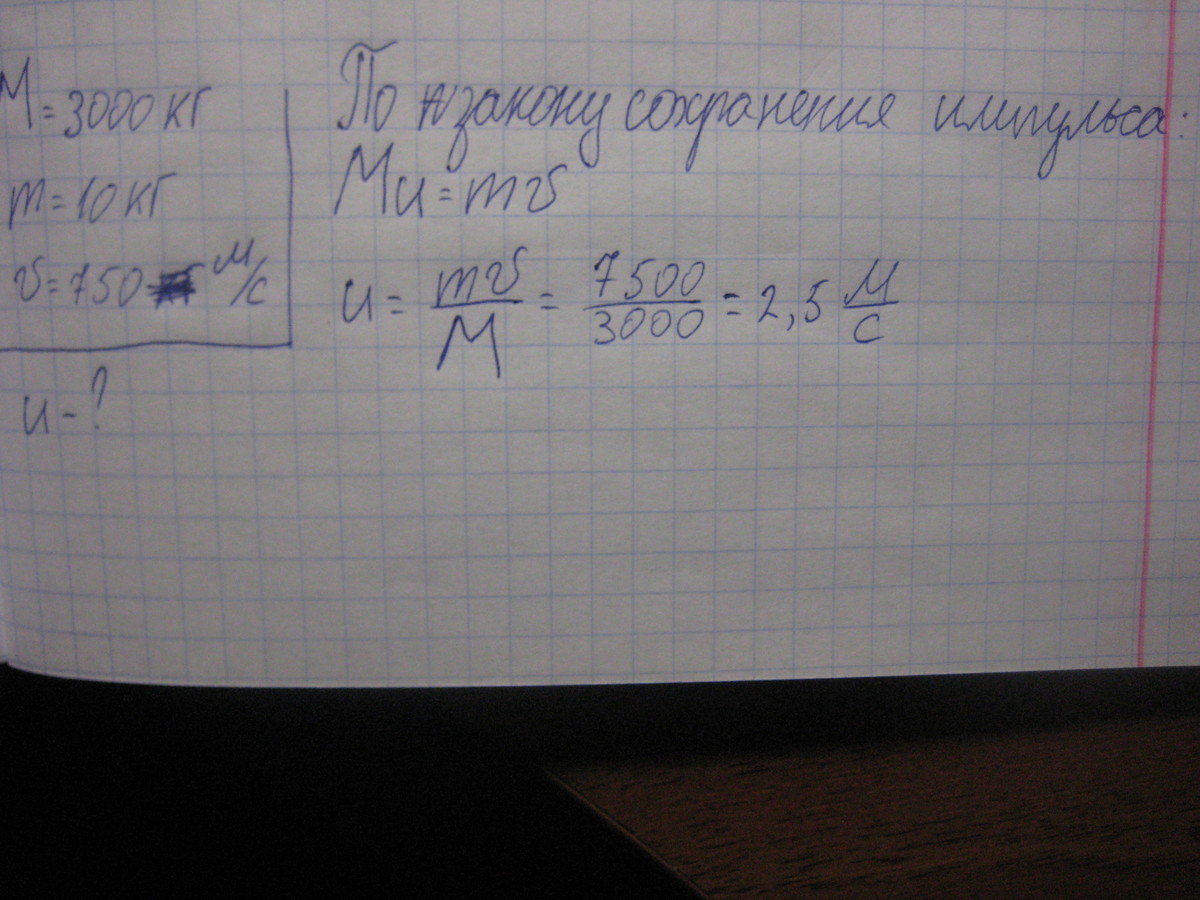 M = 3000 кг
m = 10 кг
v = 750 м/с
u - ?
По закону сохранения импульса:
Mu = mv
u = mv/M = 7500/3000 = 2,5 м/с